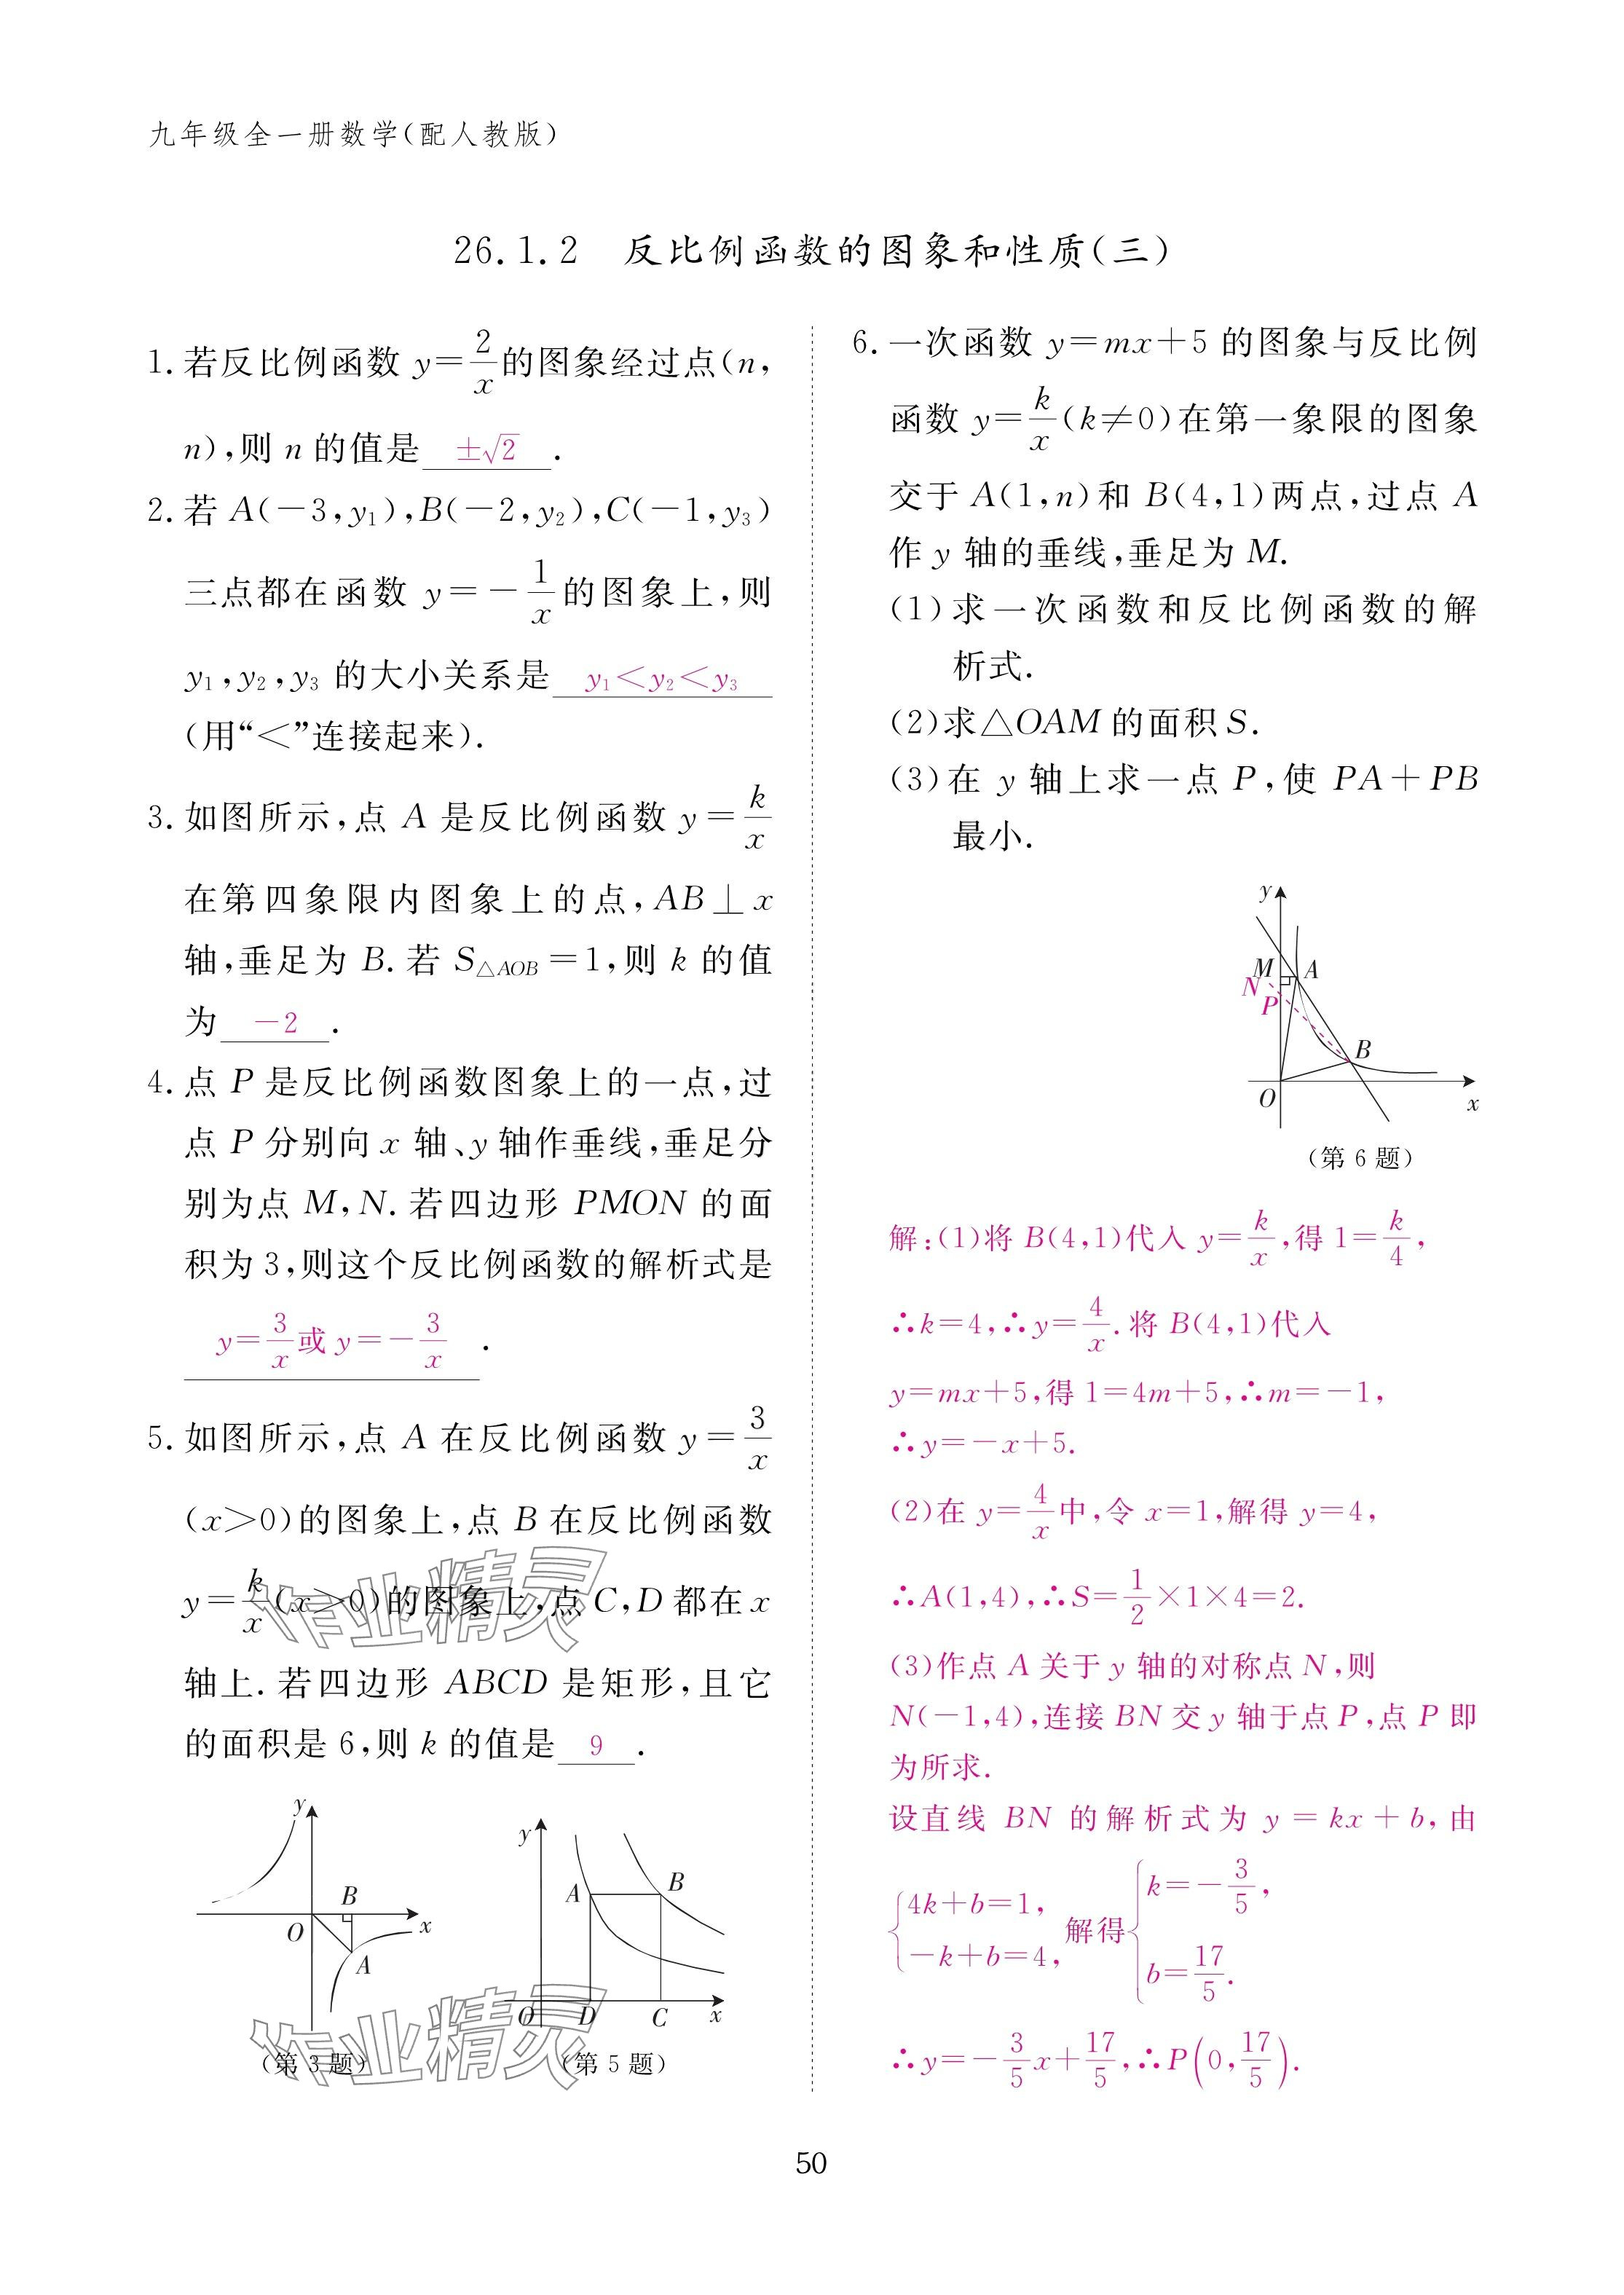 九年级全一册数学(配人教版)
26.1.2 反比例函数的图象和性质(三)
1. 若反比例函数 y=2/x的图象经过点(n,
n),则 n 的值是 ±√2 .
2. 若 A(-3,y₁),B(-2,y₂),C(-1,y₃)
三点都在函数 y=-1/x的图象上,则
y₁,y₂,y₃ 的大小关系是 y₁<y₂<y₃
(用“<”连接起来).
3. 如图所示,点 A 是反比例函数 y=k/x
在第四象限内图象上的点,AB⊥x
轴,垂足为 B. 若 S△AOB=1,则 k 的值
为 -2 .
4. 点 P 是反比例函数图象上的一点,过
点 P 分别向 x 轴、y 轴作垂线,垂足分
别为点 M,N. 若四边形 PMON 的面
积为 3,则这个反比例函数的解析式是
y=3/x或 y=-3/x .
5. 如图所示,点 A 在反比例函数 y=3/x
(x>0)的图象上,点 B 在反比例函数
y=k/x(x>0)的图象上,点 C,D 都在 x
轴上. 若四边形 ABCD 是矩形,且它
的面积是 6,则 k 的值是 9 .
y
B
O
x
A
(第 3 题)
y
A
B
O
D
C
x
(第 5 题)
作业精灵
作业精灵
6. 一次函数 y=mx+5 的图象与反比例
函数 y=k/x(k≠0)在第一象限的图象
交于 A(1,n)和 B(4,1)两点,过点 A
作 y 轴的垂线,垂足为 M.
(1)求一次函数和反比例函数的解
析式.
(2)求△OAM 的面积 S.
(3)在 y 轴上求一点 P,使 PA+PB
最小.
y
M
A
N
P
B
O
x
(第 6 题)
解:(1)将 B(4,1)代入 y=k/x,得 1=k/4,
∴k=4,∴y=4/x. 将 B(4,1)代入
y=mx+5,得 1=4m+5,∴m=-1,
∴y=-x+5.
(2)在 y=4/x中,令 x=1,解得 y=4,
∴A(1,4),∴S=1/2×1×4=2.
(3)作点 A 关于 y 轴的对称点 N,则
N(-1,4),连接 BN 交 y 轴于点 P,点 P 即
为所求.
设直线 BN 的解析式为 y=kx+b,由
{4k+b=1, -k+b=4, 解得{k=-3/5, b=17/5.
∴y=-3/5x+17/5,∴P(0,17/5).
50